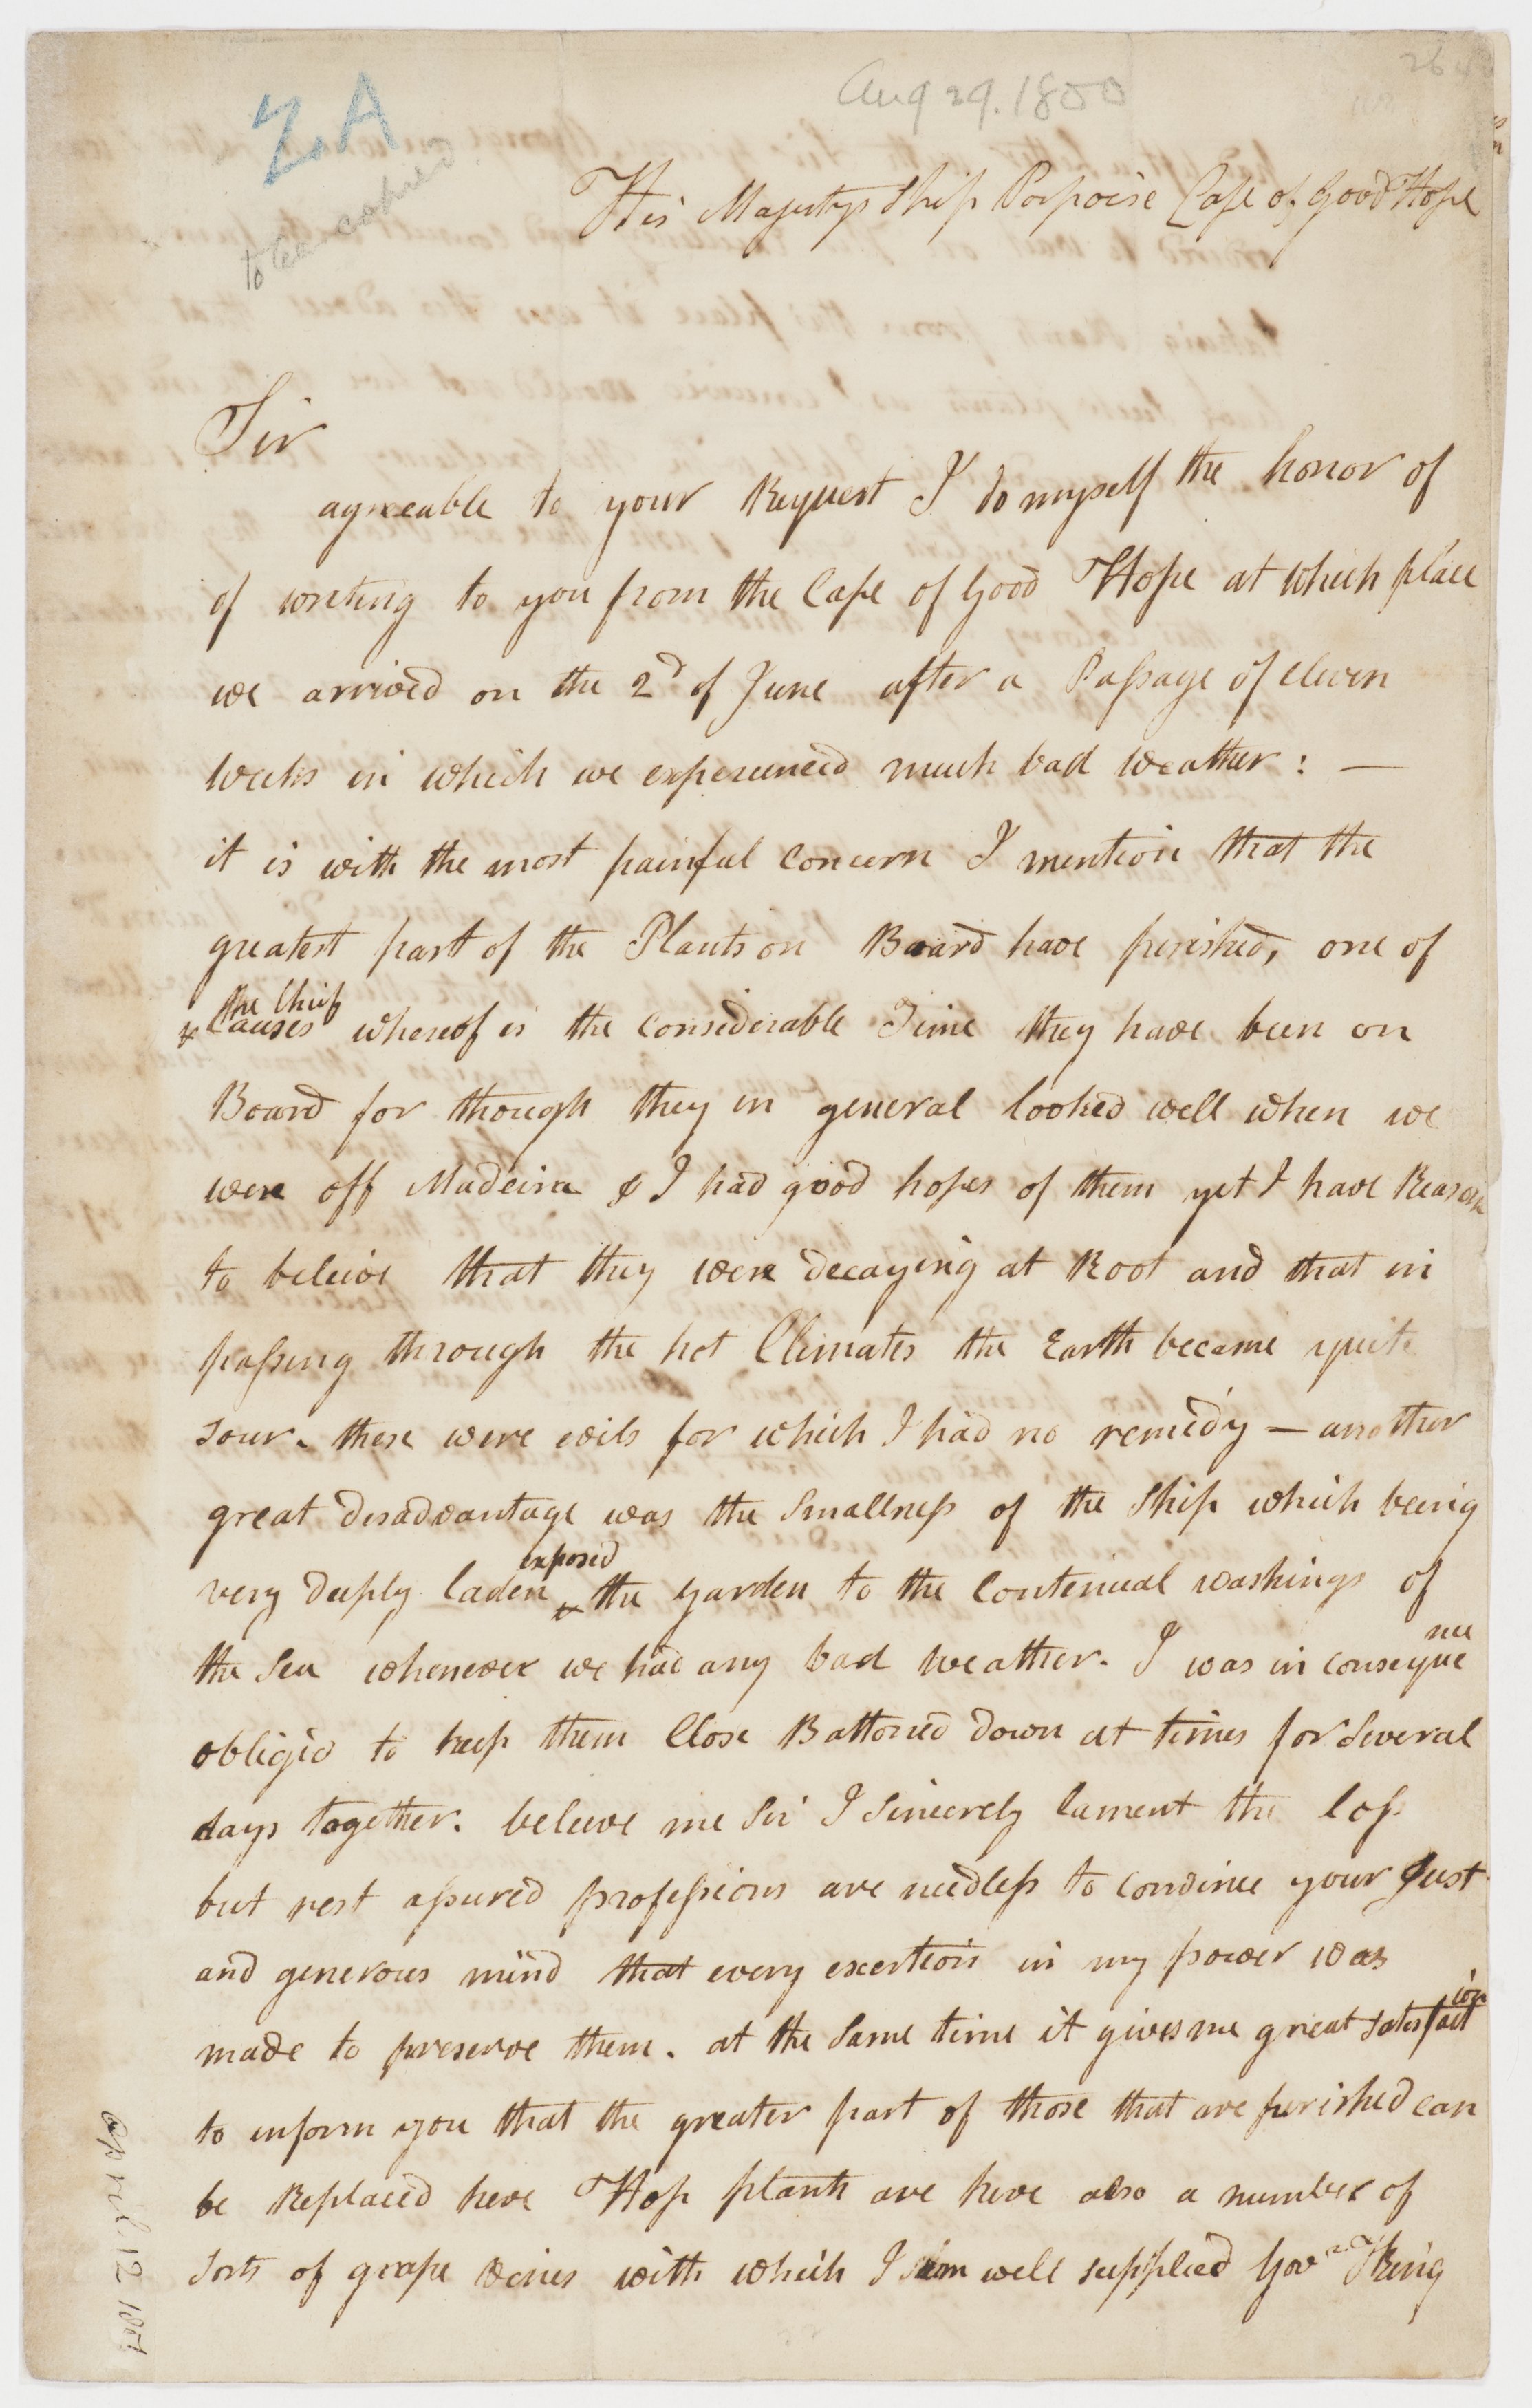 Aug 29. 1800
ZA
His Majestys Ship Porpoise Cape of Good Hope
Sir
agreeable to your Request I do myself the honor of
of writing to you from the Cape of Good Hope at which place
we arrived on the 2d of June after a Passage of eleven
weeks in which we experienced much bad weather : —
it is with the most painful concern I mention that the
greatest part of the Plants on Board have perished, one of
the Chief
x Causes whereof is the considerable Time they have been on
Board for though they in general looked well when we
were off Madeira & I had good hopes of them yet I have Reason
to beleive that they were decaying at Root and that in
passing through the hot Climates the Earth became quite
sour. these were evils for which I had no remedy — another
great disadvantage was the Smallness of the Ship which being
exposed
very deeply laden x the Garden to the Continual washings of
the Sea whenever we had any bad weather. I was in conseque
nce
obliged to keep them Close Battoned down at times for Several
days together. beleeve me Sir I Sincerely lament the loss
but rest assured professions are needless to convince your Just
and generous mind that every exertion in my power was
made to preserve them. at the Same time it gives me great satisfact
ion
to inform you that the greater part of those that are perished can
be Replaced here Hop plants are here also a number of
Sorts of grape vines with which I am well supplied Govnr King
April 12 180